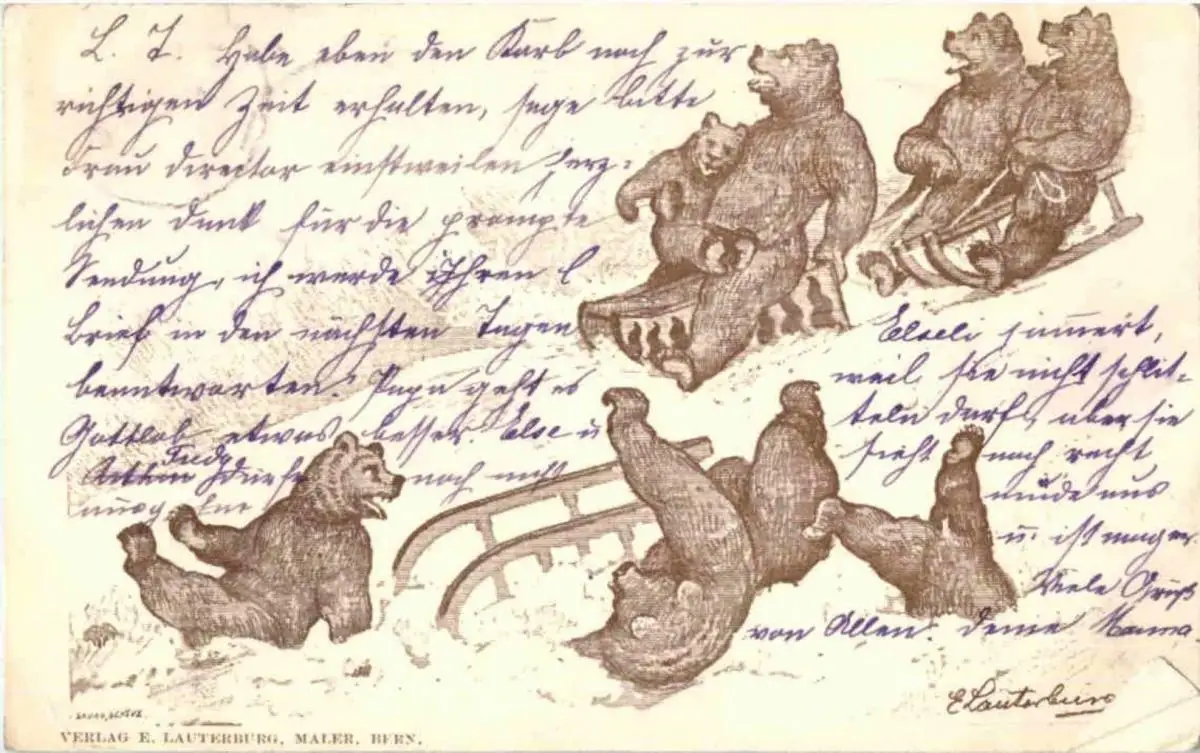 L. T. Habe eben den Korb noch zur
richtigen Zeit erhalten, sage bitte
Frau Director einstweilen herz-
lichen Dank für die prompte
Sendung, ich werde Ihren l
Brief in den nächsten Tagen
beantworten. Papa geht es
Gottlob etwas besser. Else u
dürfen noch nicht
Elseli jammert,
weil sie nicht schlit-
teln darf, aber sie
sieht noch recht
müde aus
u. ist mager.
Viele Grüße
von Allen. Deine Mama
E Lauterburg
VERLAG E. LAUTERBURG, MALER, BERN.